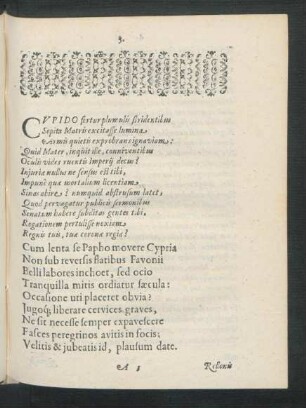 9.
CVPIDO fertur plumulis stridentibus
Sopitæ Matris excitasse lumina
Formis quieti exprobrans ignaviam:
Quid Mater, inquit ille, conniventibus
Oculis vides ruentis Imperij decus?
Injuriæ nullus ne sensus est tibi,
Impunè qua mortalium licentiam
Sinas abire? numquid abstrusum latet,
Quod pervagatur publicis sermonibus
Senatum habere subditas gentes tibi,
Rogationem pertulisse noxiam
Regnis tuis, tua corona regia?
Cum lenta se Papho movere Cypria
Non sub reversis flatibus Favonii
Belli labores inchoet, sed ocio
Tranquilla mitis ordiatur sæcula:
Occasione uti placeret obvia?
Jugosq; liberare cervices graves,
Ne sit necesse semper expavescere
Fasces peregrinos avitis in focis;
Velitis & jubeatis id, plausum date.
A 5
Reflexit